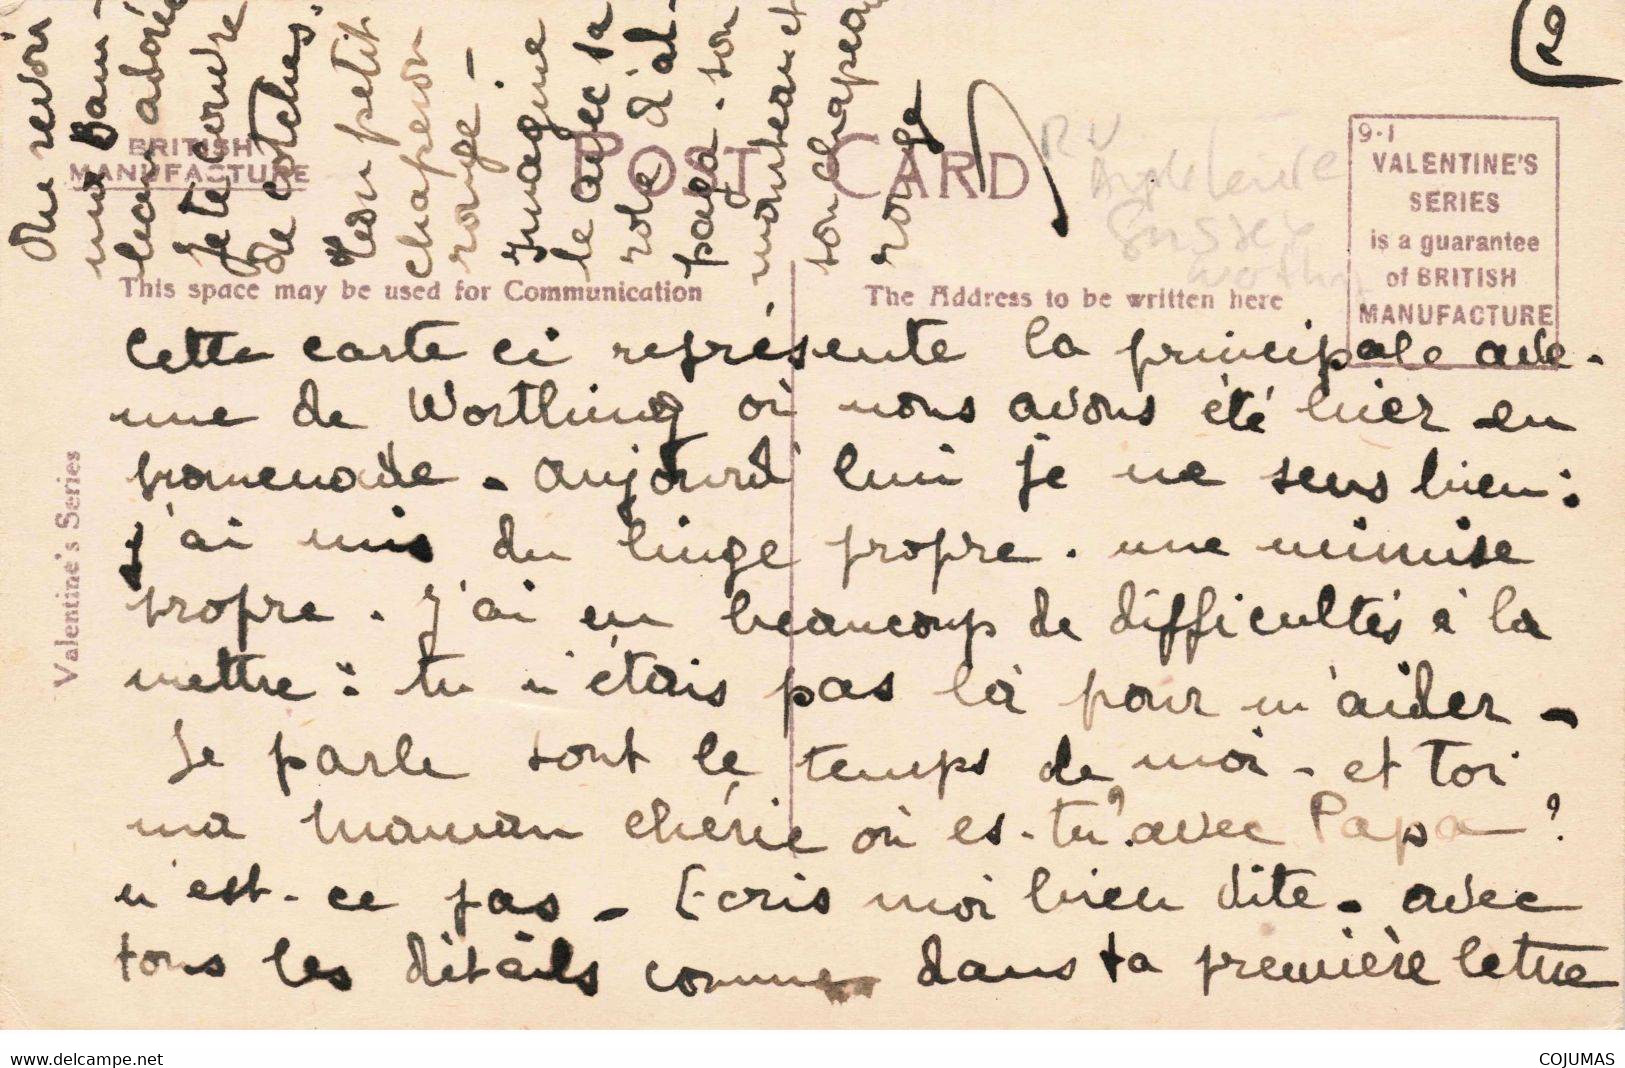 Au revoir
ma Bam-
bean adorée
je te couvre
de cotches.
Mon petit
chaperon
rouge -
Imagine
le avec sa
robe d'al-
paga. son
manteau et
son chapeau
rouge
BRITISH
MANUFACTURE
POST CARD
R V
Angleterre
Sussex
9·1
VALENTINE'S
SERIES
is a guarantee
of BRITISH
MANUFACTURE
This space may be used for Communication
The Address to be written here
Valentine's Series
Cette carte ci représente la principale ave-
nue de Worthing où nous avons été hier en
promenade - aujourd'hui je me sens bien :
j'ai mis du linge propre. une chemise
propre. J'ai eu beaucoup de difficultés à la
mettre : tu n'étais pas là pour m'aider -
Je parle tout le temps de moi - et Toi
ma maman chérie où es-tu? avec Papa ?
n'est-ce pas - Ecris moi bien vite - avec
tous les détails comme dans ta première lettre
www.delcampe.net
COJUMAS